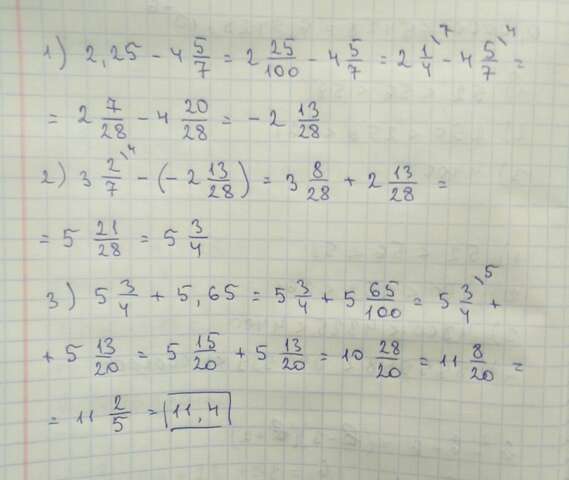 1) 2,25 - 4 5/7 = 2 25/100 - 4 5/7 = 2 1/4 \7 - 4 5/7 \4 =
= 2 7/28 - 4 20/28 = - 2 13/28
2) 3 2/7 \4 - (- 2 13/28) = 3 8/28 + 2 13/28 =
= 5 21/28 = 5 3/4
3) 5 3/4 + 5,65 = 5 3/4 + 5 65/100 = 5 3/4 \5 +
+ 5 13/20 = 5 15/20 + 5 13/20 = 10 28/20 = 11 8/20 =
= 11 2/5 = 11,4